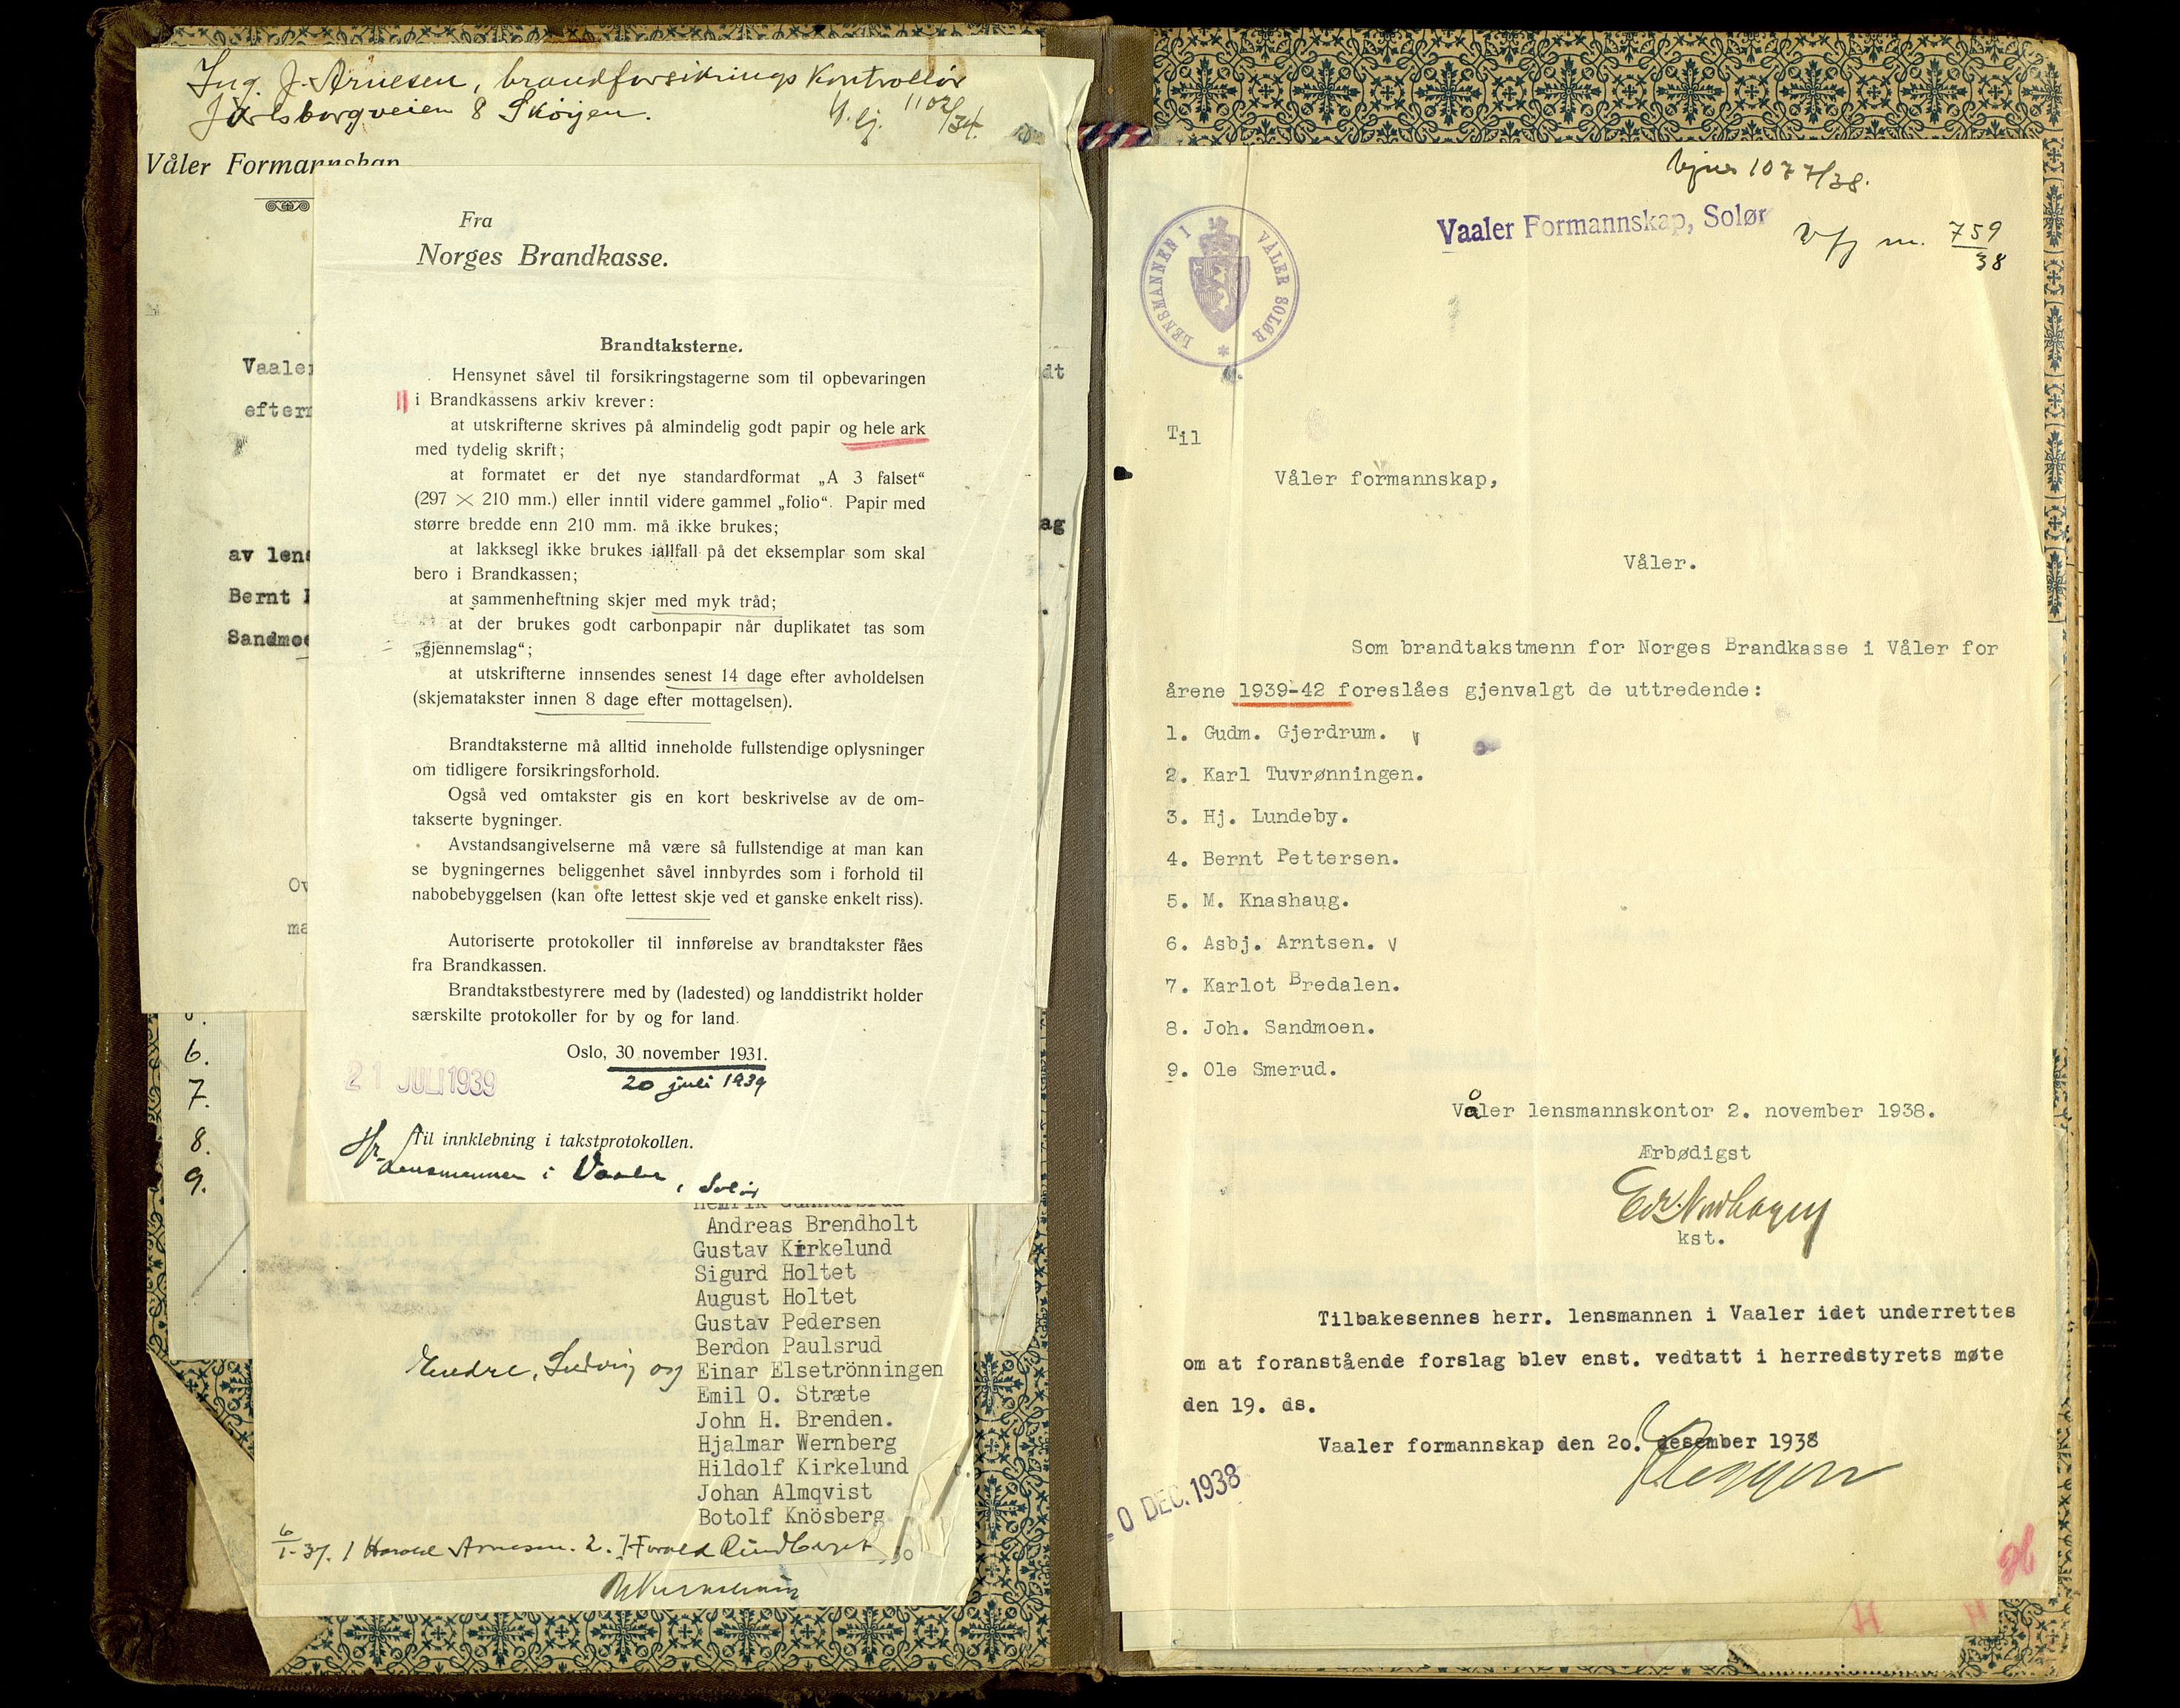 Ing. J. Arnesen, brandforsikrings Kontrollør
Jarlsborgveien 8 Skøyen.
1102/34.
Våler Formannskap
Vaaler
dt
ag
av lens
Bernt
Sandmoe
Ov
ma
Fra
Norges Brandkasse.
Brandtaksterne.
Hensynet såvel til forsikringstagerne som til opbevaringen
i Brandkassens arkiv krever:
at utskrifterne skrives på almindelig godt papir og hele ark
med tydelig skrift;
at formatet er det nye standardformat „A 3 falset“
(297 × 210 mm.) eller inntil videre gammel „folio“. Papir med
større bredde enn 210 mm. må ikke brukes;
at lakksegl ikke brukes iallfall på det eksemplar som skal
bero i Brandkassen;
at sammenheftning skjer med myk tråd;
at der brukes godt carbonpapir når duplikatet tas som
„gjennemslag“;
at utskrifterne innsendes senest 14 dage efter avholdelsen
(skjematakster innen 8 dage efter mottagelsen).
Brandtaksterne må alltid inneholde fullstendige oplysninger
om tidligere forsikringsforhold.
Også ved omtakster gis en kort beskrivelse av de om-
takserte bygninger.
Avstandsangivelserne må være så fullstendige at man kan
se bygningernes beliggenhet såvel innbyrdes som i forhold til
nabobebyggelsen (kan ofte lettest skje ved et ganske enkelt riss).
Autoriserte protokoller til innførelse av brandtakster fåes
fra Brandkassen.
Brandtakstbestyrere med by (ladested) og landdistrikt holder
særskilte protokoller for by og for land.
Oslo, 30 november 1931.
20 juli 1939
21 JULI 1939
Til innklebning i takstprotokollen.
Hr. Lensmannen i Vaaler, Solør
6.
7.
8.
9.
Andreas Brendholt
Gustav Kirkelund
Sigurd Holtet
August Holtet
Gustav Pedersen
Berdon Paulsrud
Endre, Ludvig og Einar Elsetrönningen
Emil O. Stræte
John H. Brenden.
Hjalmar Wernberg
Hildolf Kirkelund
Johan Almqvist
Botolf Knösberg
6/1-37. 1 Harald Arnesen. 2.
Vaaler Formannskap, Solør
1077/38.
759
38
LENSMANNEN I VÅLER SOLØR
Til
Våler formannskap,
Våler.
Som brandtakstmenn for Norges Brandkasse i Våler for
årene 1939-42 foreslåes gjenvalgt de uttredende:
1. Gudm. Gjerdrum. v
2. Karl Tuvrønningen.
3. Hj. Lundeby.
4. Bernt Pettersen.
5. M. Knashaug.
6. Asbj. Arntsen. v
7. Karlot Bredalen.
8. Joh. Sandmoen.
9. Ole Smerud.
Våler lensmannskontor 2. november 1938.
Ærbødigst
kst.
Tilbakesennes herr. lensmannen i Vaaler idet underrettes
om at foranstående forslag blev enst. vedtatt i herredstyrets møte
den 19. ds.
Vaaler formannskap den 20. desember 1938
0 DEC. 1938